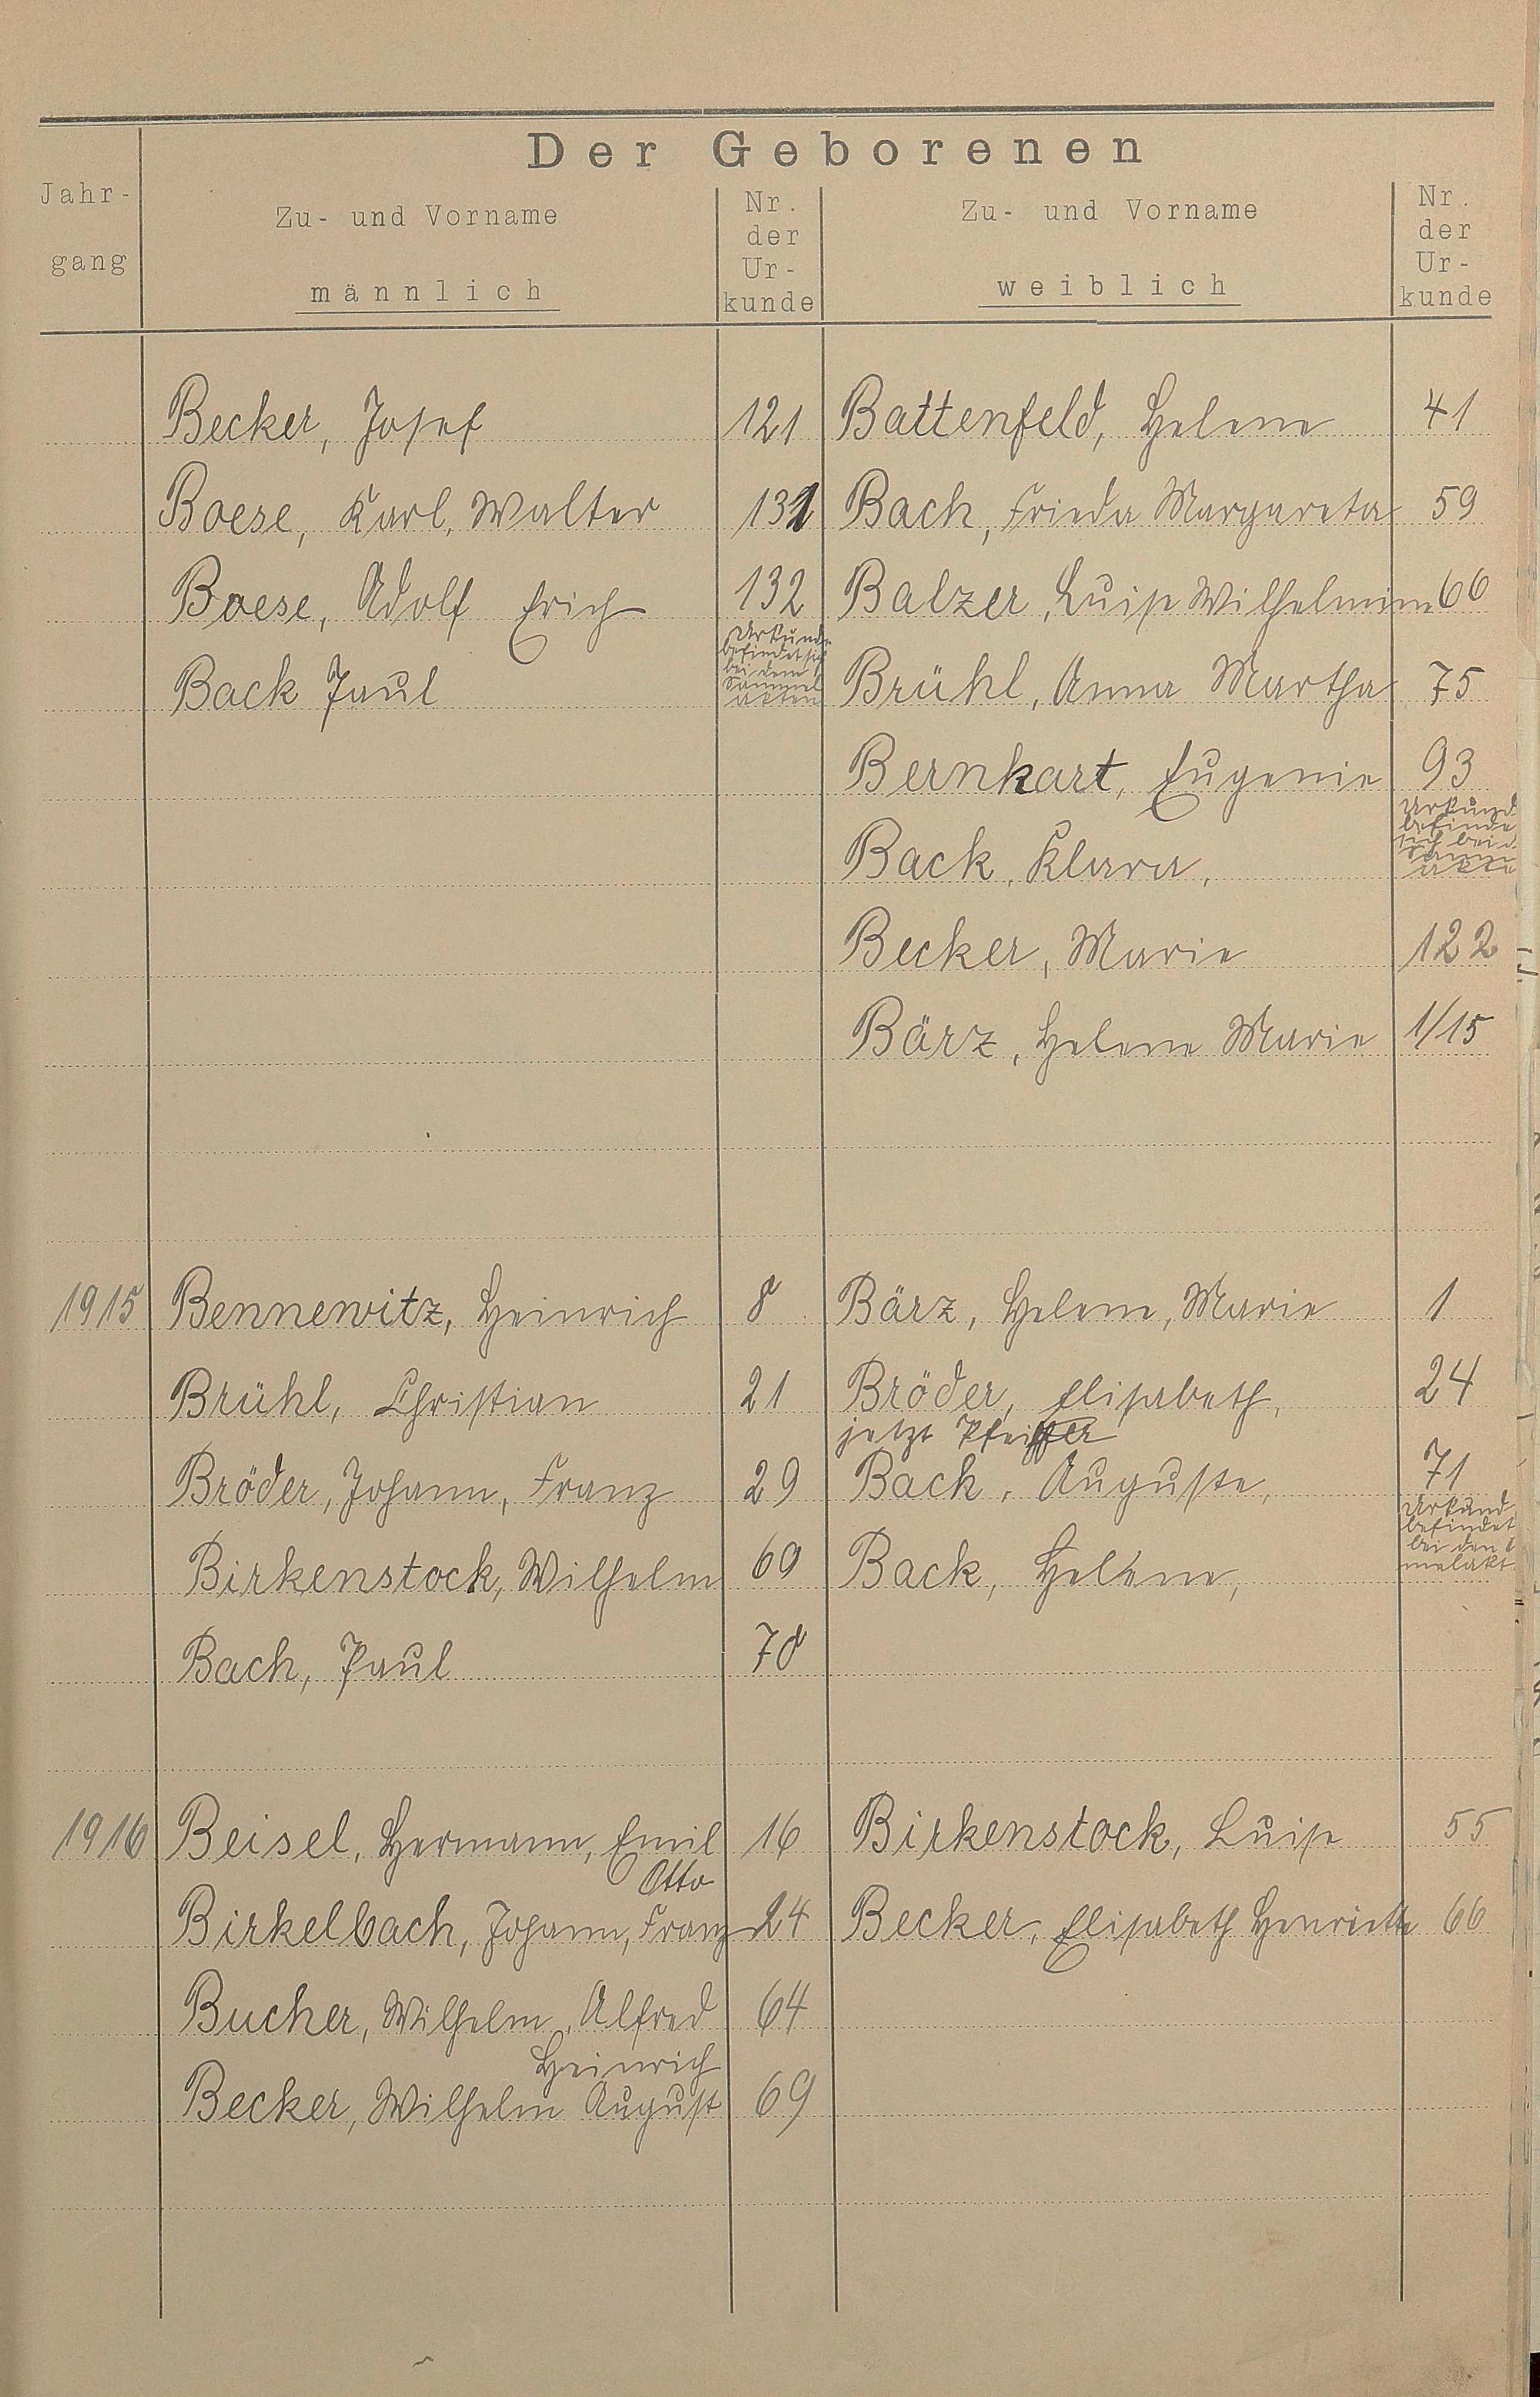 Der Geborenen
Jahr-
gang
Zu- und Vorname
männlich
Nr.
der
Ur-
kunde
Zu- und Vorname
weiblich
Nr.
der
Ur-
kunde
Becker, Josef 121 Battenfeld, Helene 41
Boese, Karl, Walter 131 Bach, Frieda Margareta 59
Boese, Adolf Erich 132 Balzer, Luise Wilhelmine 66
Back Paul
Urkunde
befindet sich
bei dem
Sammel
akten
Brühl, Anna Martha 75
Bernkart, Eugenie 93
Back, Klara,
Urkund
befinde
sich bei d.
Samm
akte
Becker, Marie 122
Bärz, Helene Marie 1/15
1915 Bennewitz, Heinrich 8 Bärz, Helene, Marie 1
Brühl, Christian 21 Bröder, Elisabeth, 24
jetzt Pfeiffer
Bröder, Johann, Franz 29 Back, Auguste, 71
Birkenstock, Wilhelm 69 Back, Helene,
Urkund
befindet
bei den
melakt
Bach, Paul 78
1916 Beisel, Hermann, Emil 16 Birkenstock, Luise 55
Otto
Birkelbach, Johann, Franz 24 Becker, Elisabeth Henriette 66
Bucher, Wilhelm, Alfred 64
Heinrich
Becker, Wilhelm August 69